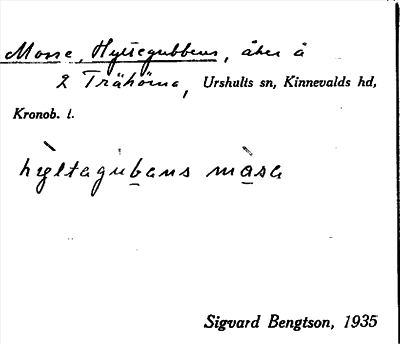 Mosse, Hyltegubbens, åker å
2 Trähörna, Urshults sn, Kinnevalds hd,
Kronob. l.
hỳltagubans màsa
Sigvard Bengtson, 1935